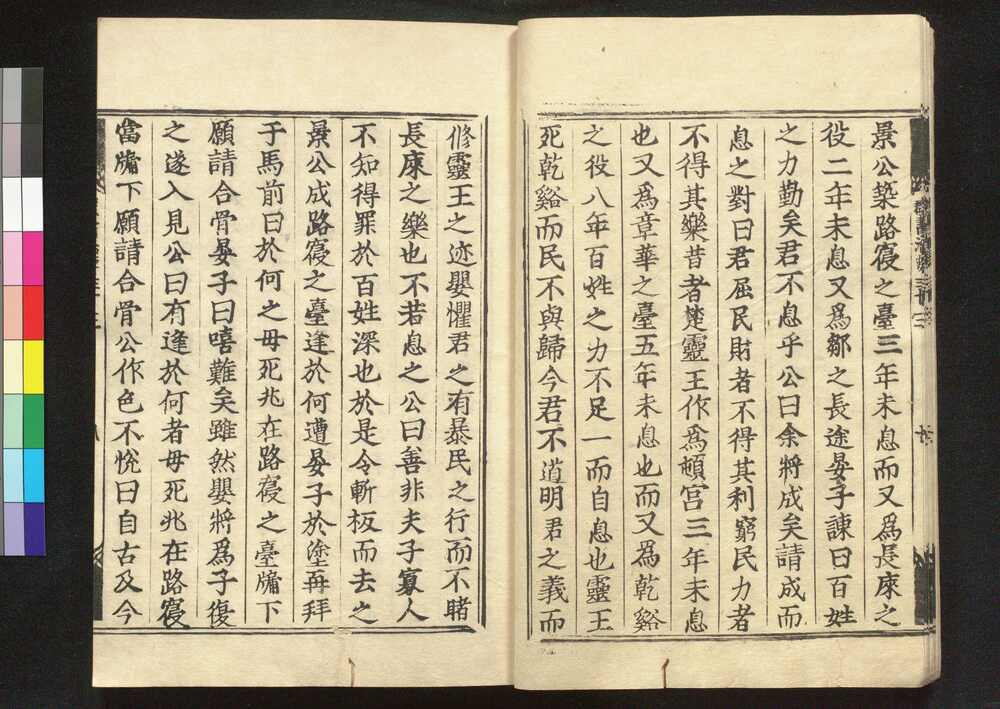 景公築路寢之臺三年未息而又爲長庲之
役二年未息又爲鄒之長途晏子諫曰百姓
之力勤矣君不息乎公曰余將成矣請成而
息之對曰君屈民財者不得其利窮民力者
不得其樂昔者楚靈王作爲頓宮三年未息
也又爲章華之臺五年未息也而又爲乾谿
之役八年百姓之力不足一而自息也靈王
死乾谿而民不與歸今君不道明君之義而
修靈王之迹嬰懼君之有暴民之行而不睹
長庲之樂也不若息之公曰善非夫子寡人
不知得罪於百姓深也於是令斬板而去之
景公成路寢之臺逢於何遭晏子於塗再拜
于馬前曰於何之母死兆在路寢之臺牖下
願請合骨晏子曰嘻難矣雖然嬰將爲子復
之遂入見公曰有逢於何者母死兆在路寢
當牖下願請合骨公作色不悅曰自古及今